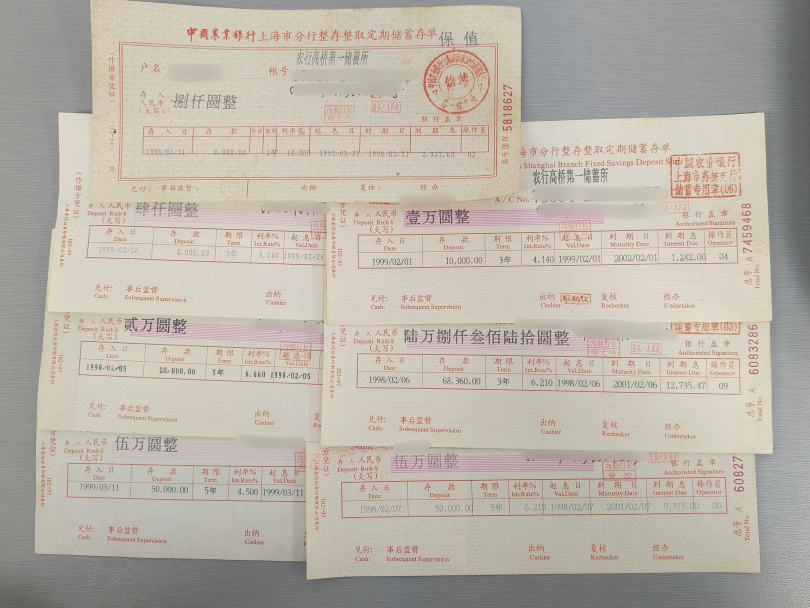 中國農業銀行上海市分行整存整取定期储蓄存单
保 值
户名
帐号
农行高桥第一储蓄所
存 入
人民币
(大写)
捌仟圆整
银行盖章
5818627
存入日 存款 期限 利率% 起息日 到期日 到期息 操作员
1995/03/31 8,000.00 3年 1995/03/31 1998/03/31 03
兑付: 事后监督: 出纳 复核: 经办
肆仟圆整
存 入 人民币
Deposit Rmb¥
(大写)
存入日 存款 期限 利率% 起息日
Date Deposit Term Int.Rate% Val.Date
4,000.00 3年 4.140
兑付: 事后监督 出纳
Cash: Subsequent Supervision Cashier
海市分行整存整取定期储蓄存单
Shanghai Branch Fixed Savings Deposit
农行高桥第一储蓄所
A/C No.
中国农业银行
上海市高桥支行
储蓄专用章(06)
存 入 人民币
Deposit Rmb¥
(大写)
壹万圆整
银行盖章
Authorised Signature
存入日 存款 期限 利率% 起息日 到期日 到期息 操作员
Date Deposit Term Int.Rate% Val.Date Maturity Date Interest Due Operator
1999/02/01 10,000.00 3年 4.140 1999/02/01 2002/02/01 1,242.00 04
兑付: 事后监督 出纳 复核 经办
Cash: Subsequent Supervision Cashier Rechecker Undertaker
总号 A 7459468
Total No.
人民币
Deposit Rmb¥
(大写)
贰万圆整
存入日 存款 期限 利率% 起息日
Date Deposit Term Int.Rate% Val.Date
1998/02/05 20,000.00 5年 6.660 1998/02/05
兑付: 事后监督 出纳
Cash: Subsequent Supervision Cashier
存 入 人民币
Deposit Rmb¥
(大写)
陆万捌仟叁佰陆拾圆整
储蓄专用章(03)
银行盖章
Authorised Signature
存入日 存款 期限 利率% 起息日 到期日 到期息 操作员
Date Deposit Term Int.Rate% Val.Date Maturity Date Interest Due Operator
1998/02/06 68,360.00 3年 6.210 1998/02/06 2001/02/06 12,735.47 09
兑付: 事后监督 出纳 复核 经办
Cash: Subsequent Supervision Cashier Rechecker Undertaker
总号 A 6083286
Total No.
存 入 人民币
Deposit Rmb¥
(大写)
伍万圆整
存入日 存款 期限 利率% 起息日
Date Deposit Term Int.Rate% Val.Date
1999/03/11 50,000.00 5年 4.500 1999/03/11
兑付: 事后监督 出纳
Cash: Subsequent Supervision Cashier
存 入 人民币
Deposit Rmb¥
(大写)
伍万圆整
银行盖章
Authorised Signature
存入日 存款 期限 利率% 起息日 到期日 到期息 操作员
Date Deposit Term Int.Rate% Val.Date Maturity Date Interest Due Operator
1998/02/07 50,000.00 3年 6.210 1998/02/07 2001/02/07 9,315.00 06
兑付: 事后监督 出纳 复核 经办
Cash: Subsequent Supervision Cashier Rechecker Undertaker
总号 A 60827
Total No.